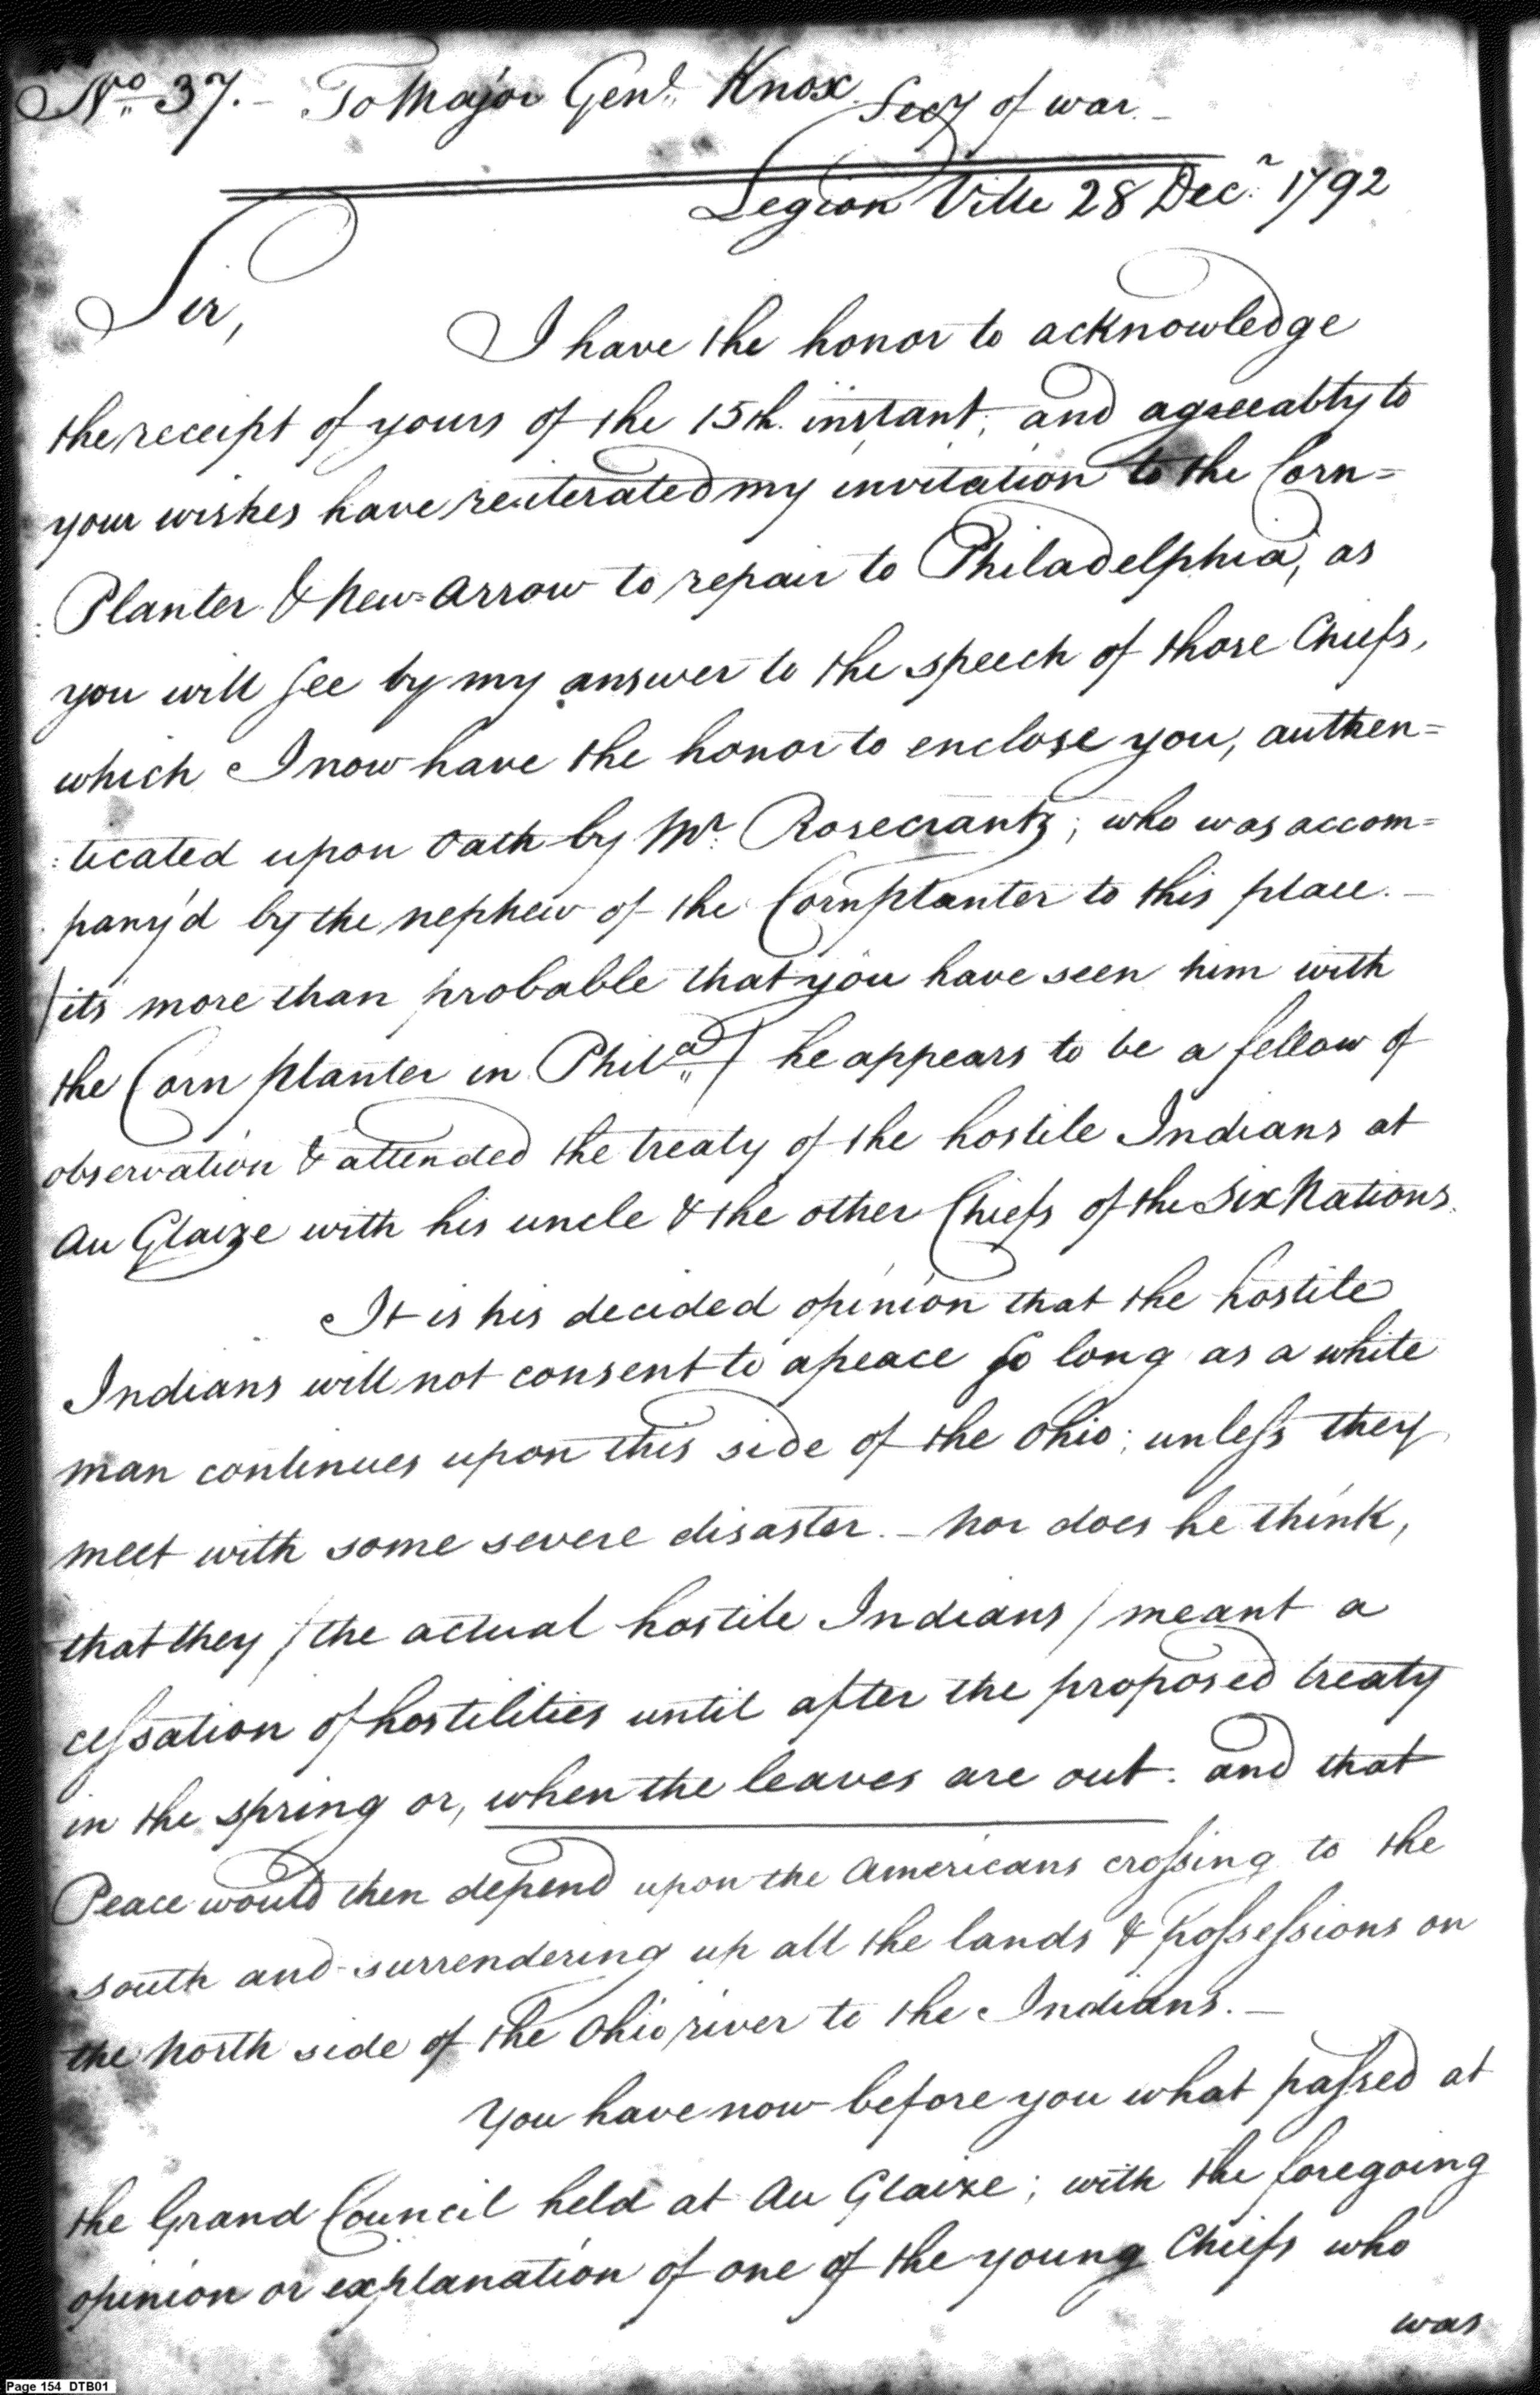 No. 37. - To Major Genl. Knox Secy of war. -
Legion Ville 28 Decr. 1792
Sir,
I have the honor to acknowledge
the receipt of yours of the 15th. instant, and agreeably to
your wishes have reiterated my invitation to the Corn=
Planter & New=Arrow to repair to Philadelphia, as
you will see by my answer to the speech of those Chiefs,
which I now have the honor to enclose you, authen=
:ticated upon Oath by Mr. Rosecrantz; who was accom=
pany'd by the nephew of the Cornplanter to this place. -
/its more than probable that you have seen him with
the Corn planter in Philad/ he appears to be a fellow of
observation & attended the treaty of the hostile Indians at
Au Glaize with his uncle & the other Chiefs of the Six Nations.
It is his decided opinion that the hostile
Indians will not consent to a peace so long as a white
man continues upon this side of the Ohio; unless they
meet with some severe disaster. - Nor does he think,
that they /the actual hostile Indians/ meant a
cessation of hostilities until after the proposed treaty
in the spring or, when the leaves are out. and that
Peace would then depend upon the Americans crossing to the
south and surrendering up all the lands & possessions on
the North side of the Ohio river to the Indians. -
You have now before you what passed at
the Grand Council held at Au Glaize; with the foregoing
opinion or explanation of one of the young Chiefs who
was
Page 154 DTB01